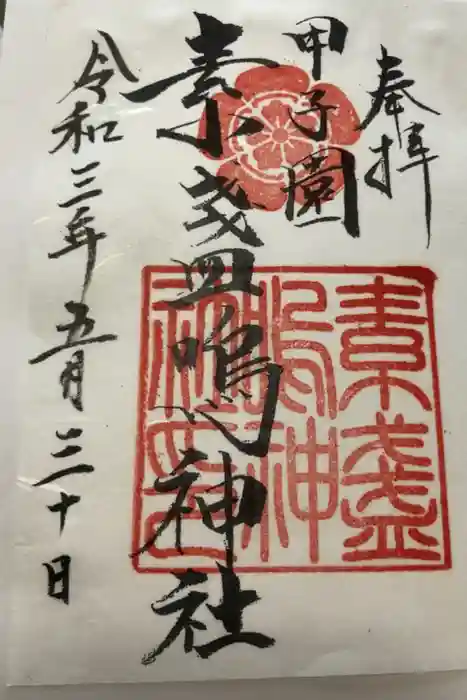 奉拝
甲子園
素盞嗚神社
令和三年五月三十日
素盞
嗚神
社印